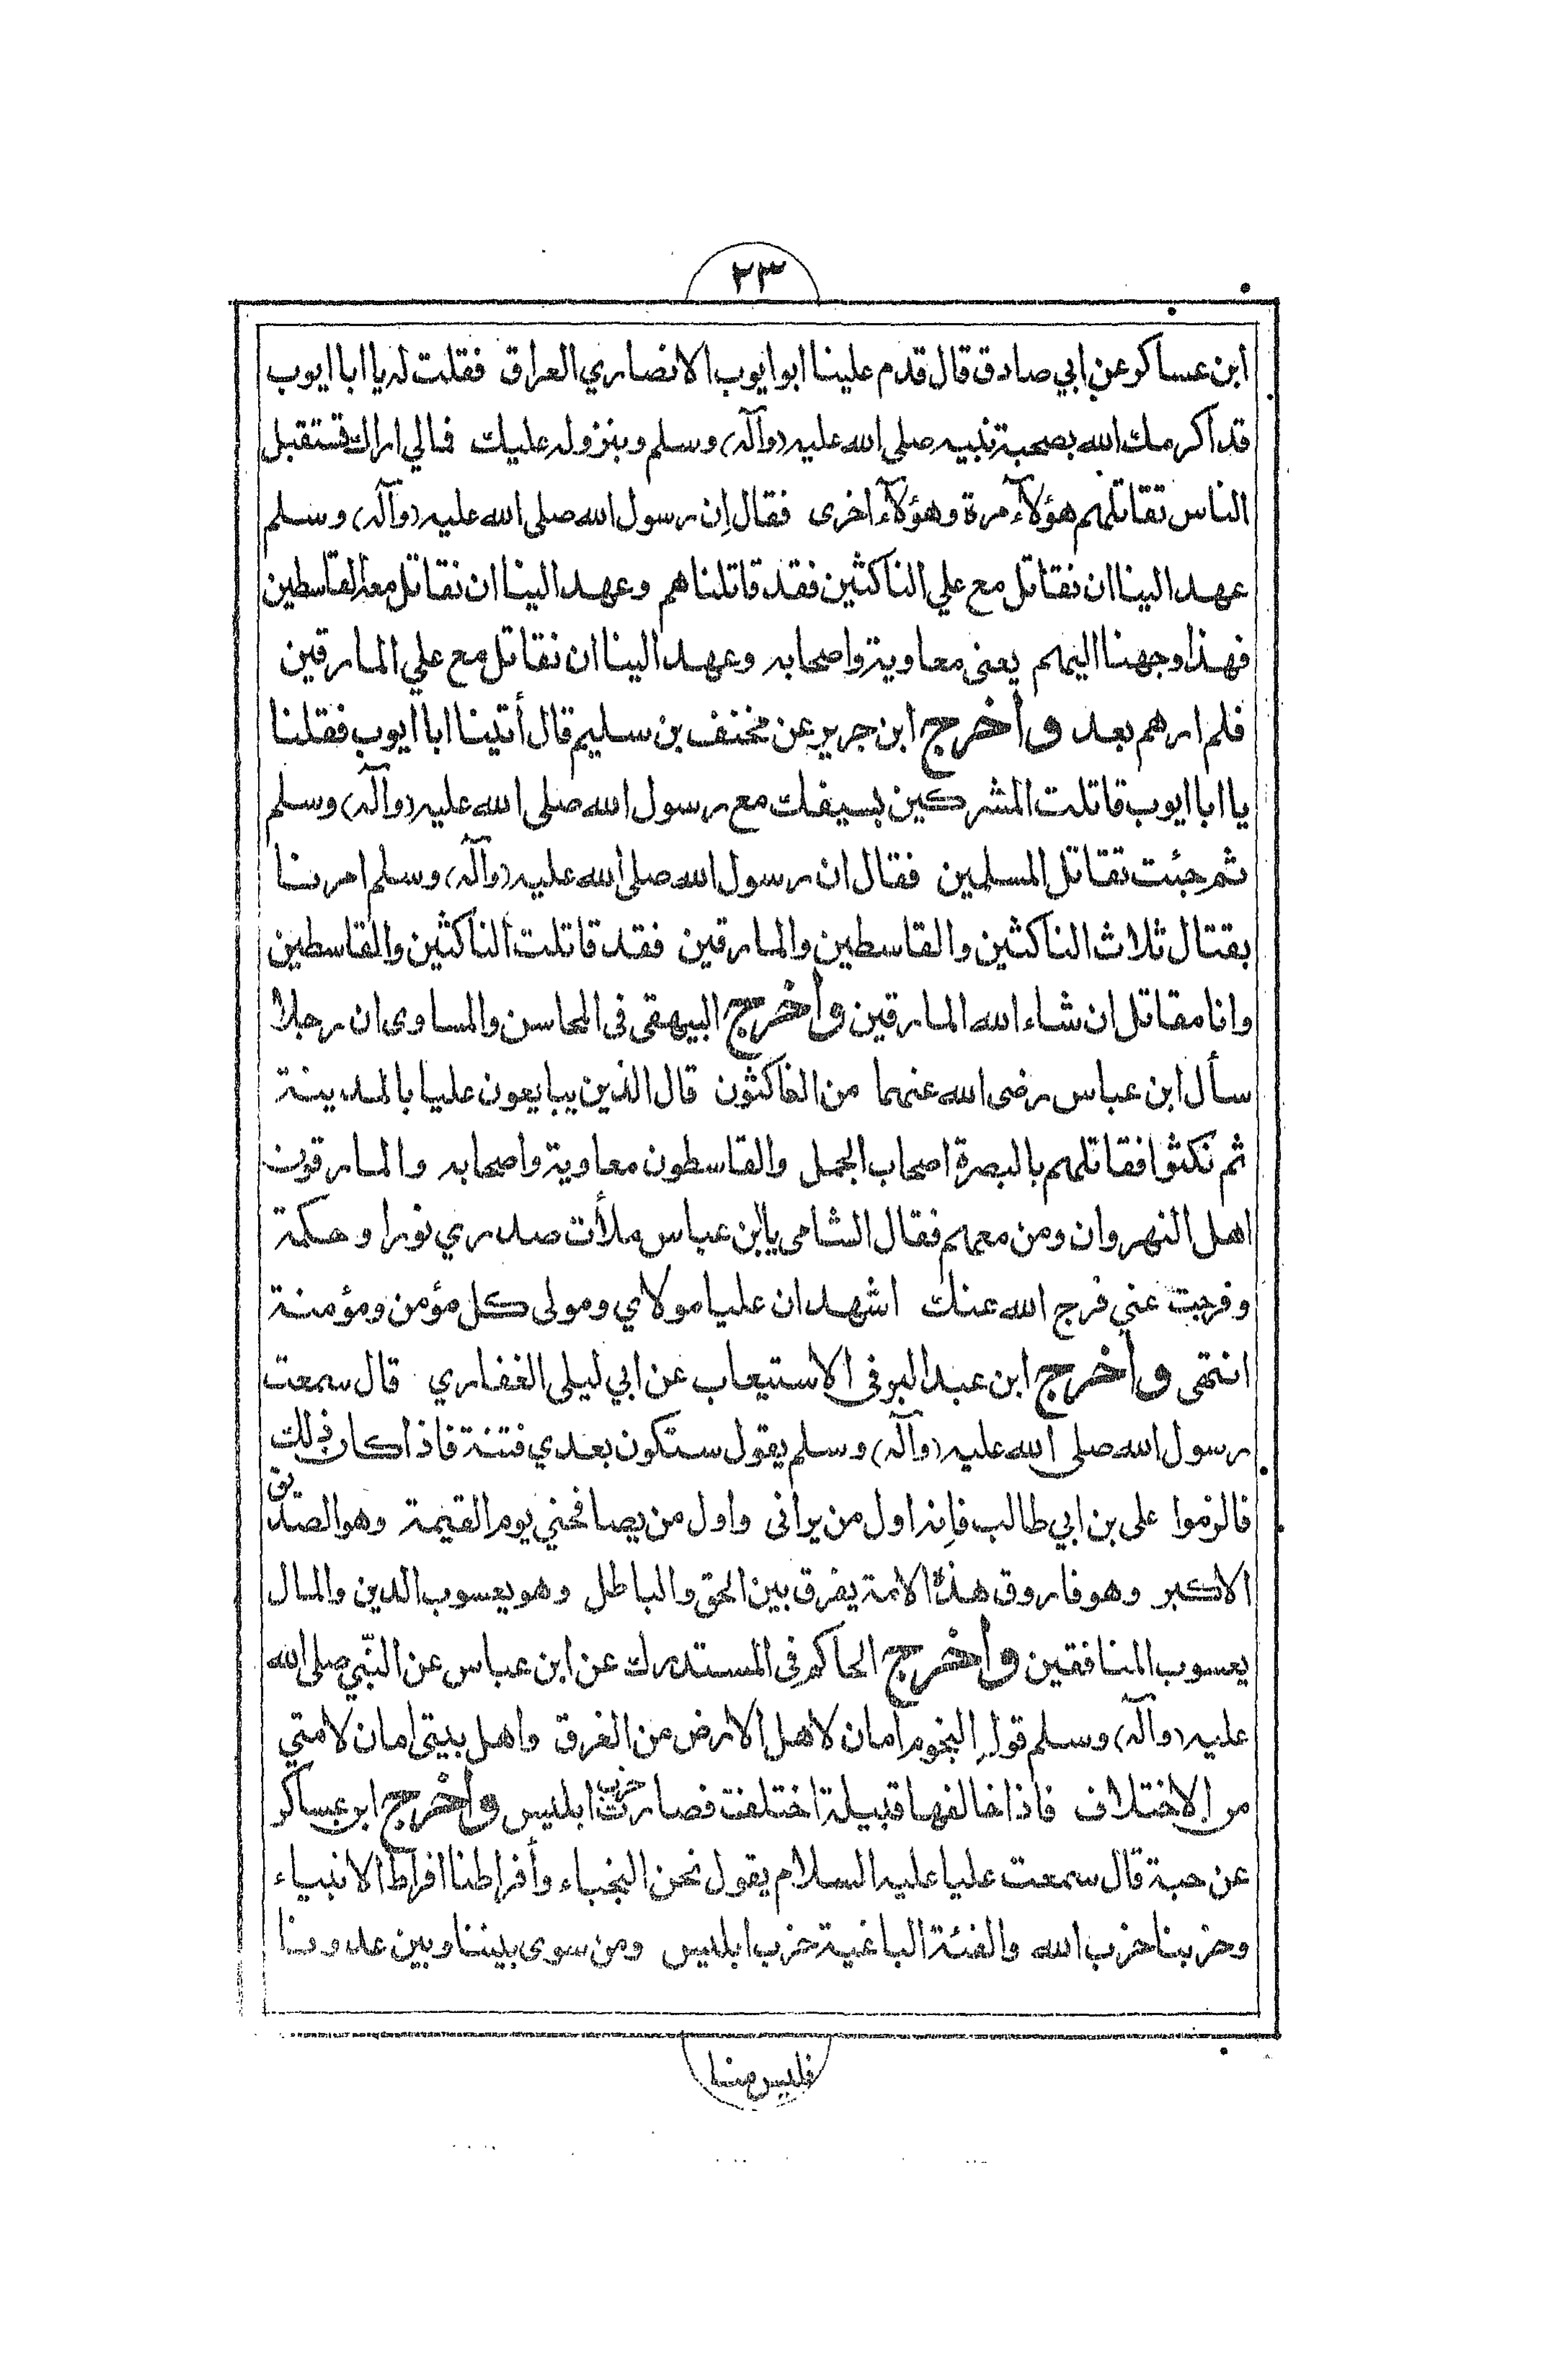 ٢٣
ابن عساكر عن ابي صادق قال قدم علينا ابو ايوب الانصاري العراق فقلت له يا ابا ايوب
قد اكرمك الله بصحبة نبيه صلى الله عليه (وآله) وسلم وبنزوله عليك فمالي اراك تستقبل
الناس تقاتلهم هؤلآء مرة وهؤلآء اخرى فقال إن رسول الله صلى الله عليه (وآله) وسلم
عهد الينا ان نقاتل مع علي الناكثين فقد قاتلناهم وعهد الينا ان نقاتل معه القاسطين
فهذا وجهنا اليهم يعنى معاوية واصحابه وعهد الينا ان نقاتل مع علي المارقين
فلم ارهم بعد وأخرج ابن جرير عن مخنف بن سليم قال أتينا ابا ايوب فقلنا
يا ابا ايوب قاتلت المشركين بسيفك مع رسول الله صلى الله عليه (وآله) وسلم
ثم جئت تقاتل المسلمين فقال ان رسول الله صلى الله عليه (وآله) وسلم امرنا
بقتال ثلاث الناكثين والقاسطين والمارقين فقد قاتلت الناكثين والقاسطين
وانا مقاتل ان شاء الله المارقين وأخرج البيهقى فى المحاسن والمساوى ان رجلا
سأل ابن عباس رضى الله عنهما من الناكثون قال الذين يبايعون عليا بالمدينة
ثم نكثوا فقاتلهم بالبصرة اصحاب الجمل والقاسطون معاوية واصحابه والمارقون
اهل النهروان ومن معهم فقال الشامى يا ابن عباس ملأت صدري نورا وحكمة
وفرجت عني فرج الله عنك اشهد ان عليا مولاي ومولى كل مؤمن ومؤمنة
انتهى وأخرج ابن عبد البر فى الاستيعاب عن ابي ليلى الغفاري قال سمعت
رسول الله صلى الله عليه (وآله) وسلم يقول ستكون بعدي فتنة فاذا كان ذلك
فالزموا على بن ابي طالب فإنه اول من يرانى واول من يصافحني يوم القيمة وهو الصدّيق
الاكبر وهو فاروق هذه الامة يفرق بين الحق والباطل وهو يعسوب الدين والمال
يعسوب المنافقين وأخرج الحاكم فى المستدرك عن ابن عباس عن النّبي صلى الله
عليه (وآله) وسلم قوله النجوم امان لاهل الارض من الغرق واهل بيتى امان لامتي
من الاختلاف فاذا خالفها قبيلة اختلفت فصارت حزب ابليس وأخرج ابن عساكر
عن حبة قال سمعت عليا عليه السلام يقول نحن النجباء وأفراطنا افراط الانبياء
وحزبنا حزب الله والفئة الباغية حزب ابليس ومن سوى بيننا وبين عدونا
فليس منا